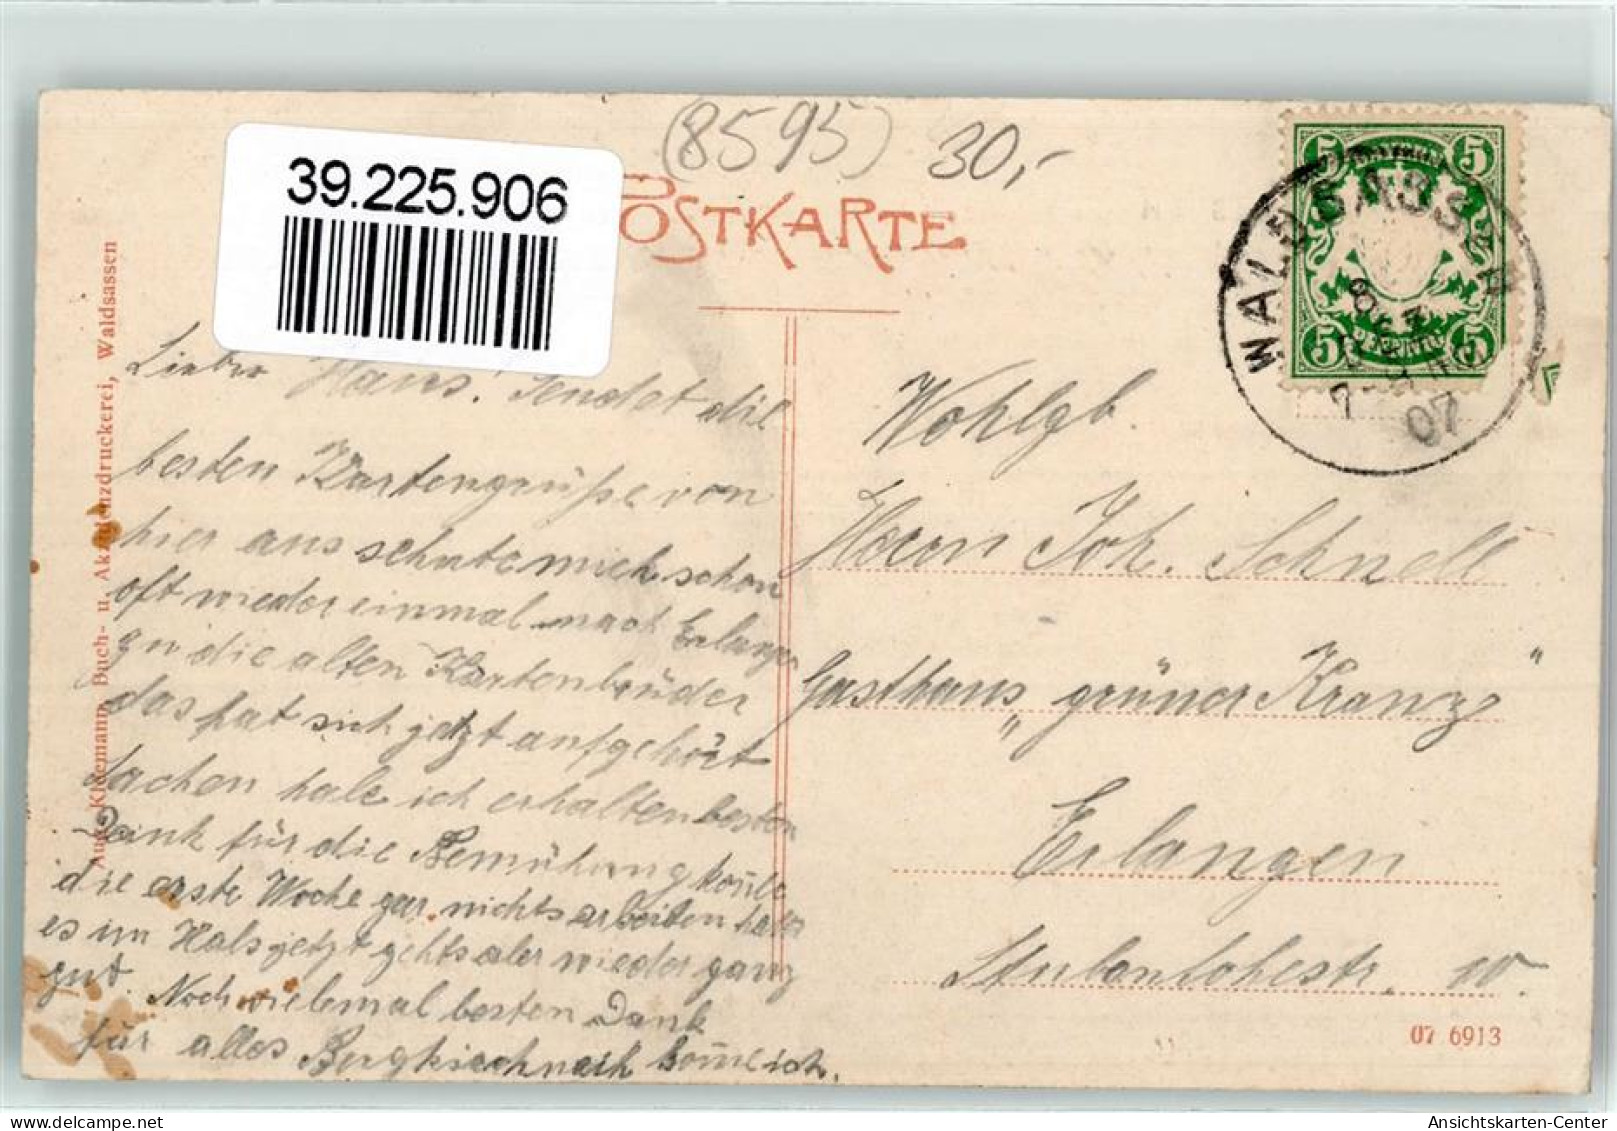 (8595) 30,-
39.225.906
POSTKARTE
WALDSASSEN
07
5 5
5 5
Aug. Kleemann, Buch- u. Akzidenzdruckerei, Waldsassen
Lieber Hans! Sendet die
besten Kartengrüße von
hier aus sehnte mich schon
oft wieder einmal nach Erlangen
zu die alten Kartenbrüder
das hat sich jetzt aufgehört
Sachen habe ich erhalten besten
Dank für die Bemühung konnte
die erste Woche gar nichts arbeiten hatte
es im Hals jetzt gehts aber wieder ganz
gut. Noch vielemal besten Dank
für alles Bergkirchweih komme ich.
Wohlgb.
Herrn Joh. Schnell
Gasthaus „grüner Kranz"
Erlangen
Stubenlohestr. 10.
07 6913
Ansichtskarten-Center